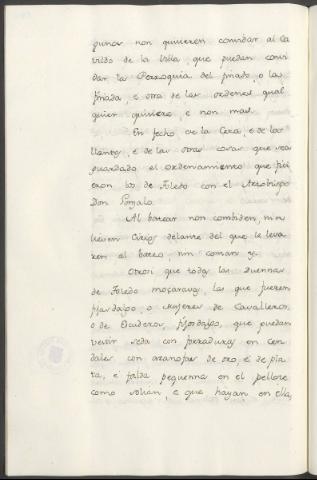 punos non quisieren convidar al Ca
vildo de la Villa, que puedan convi
dar la Perroquia del finado, o las
finada, e otra de las ordenes qual
quier quisiere, e non mas.
En fecho de la Cera, e de los
llantos, e de las otras cosas que sea
guardado el ordenamiento que fici
eron los de Toledo con el Arzobispo
Don Gonzalo.
Al bateár non combiden, nin
lleven Cirios delante del que le leva
ren al bateo, nin coman y.
Otrosi que todas las Duennas
de Toledo moçaravas, las que fueren
fijasdalgo, o Mujeres de Cavalleros,
o de Escuderos, fijosdalgo, que puedan
vestir seda con peñaduras en Cen
dales con oranofas de oro, e de pla
ta, e falda pequenna en el pellote
como solian, e que hayan en ella,